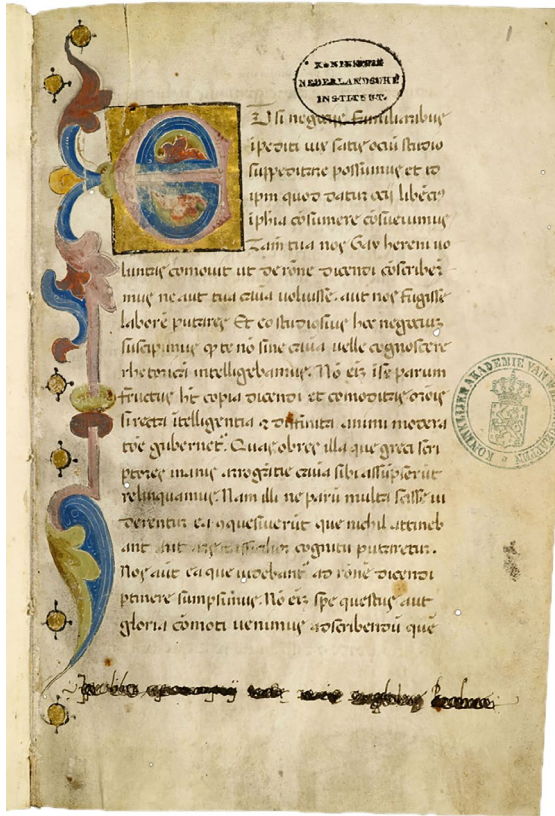 1
KONINKLIJK
NEDERLANDSCHE
INSTITUUT.
E Tsi negotijs familiaribus
ĩpediti uix satis ociũ studio
suppeditare possumus et id
ipm quod datur ocij libẽtiꝰ
ĩ phia cõsumere cõsueuimus
Tam̃ tua nos Gay hereni uo
luntas comouit ut de rõne dicendi cõscriberẽ
mus ne aut tua causa noluisse aut nos fugisse
laborẽ putares Et eo studiosius hoc negocium
suscipimus ꝙ te nõ sine causa uelle cognoscere
rhetoricã intelligebamus. Nõ eĩ ĩ se parum
fructus hẽt copia dicendi et comoditas orõis
si recta ĩtelligentia ⁊ diffinita animi modera
tõe gubernet̃. Quas obres illa que greci scri
ptores inanis arrogãtie causa sibi assũpserũt
relinquamus. Nam illi ne parũ multa scisse ui
derentur ea ꝯquesiuerũt que nichil attineb
ant aut ars cognitu putaretur.
Nos aũt ea que uidebant̃ ad rõnẽ dicendi
ptinere sumpsimus. Nõ eĩ spe questus aut
gloria cõmoti uenimus ad scribendũ quẽ
KONINKLIJKE AKADEMIE VAN